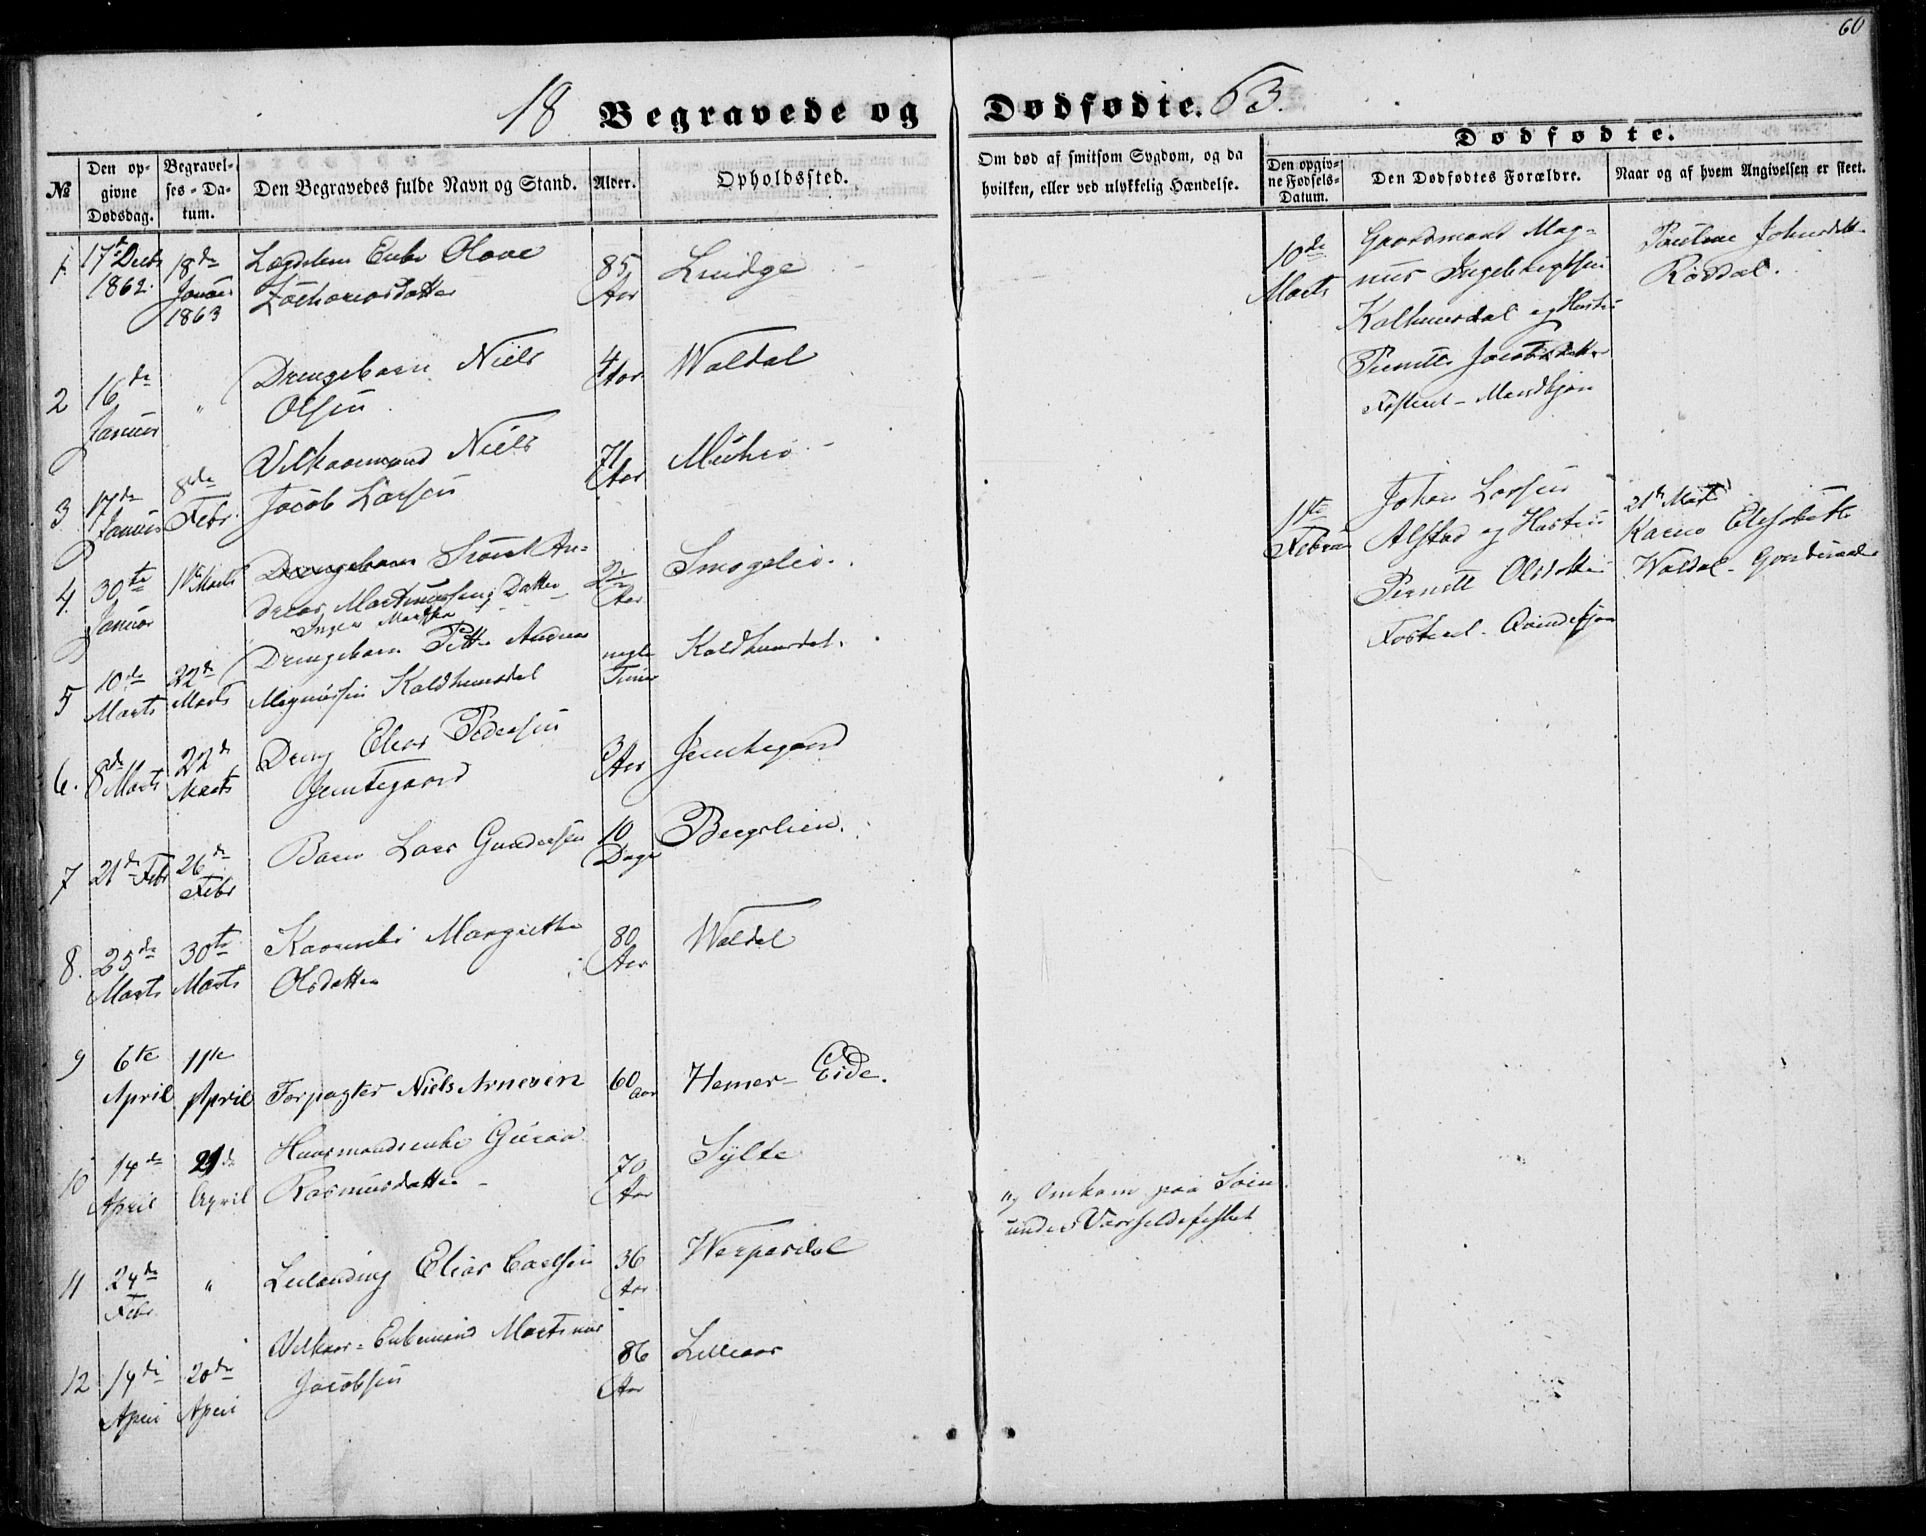 60
18 Begravede og Dødfødte. 63.
№
Den opgivne Dødsdag.
Begravelses-Datum.
Den Begravedes fulde Navn og Stand.
Alder.
Opholdssted.
Om død af smitsom Sygdom, og da hvilken, eller ved ulykkelig Hændelse.
Dødfødte.
Den opgivne Fødsels-Datum.
Den Dødfødtes Forældre.
Naar og af hvem Angivelsen er skeet.
1. 17de Decbr 1862. 18de Januar 1863
Enke
Zachariasdatter
85 Aar
Linge
2 16de Januar "
Drengebarn Niels
Olsen
4 Aar
Waldal
3 17de Januar 8de Febr.
Vilkaarmand Niels
Jacob Larsen
71 Aar
Muhrø
4. 30te Januar 1te Marts
Drengebarn An=
dreas Martinussens Datter
Inger Martha
Aar
Smogelie.
5 10de Marts 22de Marts
Drengebarn Petter Andreas
Magnussen Kaldhuusdal
nogle Timer
Kaldhuusdal.
6. 8de Marts 22de Marts
Dreng Elias Pedersen
Jemtegaard
3 Aar
Jemtegaard
7 21de Febr 26de Febr
Barn Lars Gundersen
10 Dage
Bergslien.
8. 25de Marts 30te Marts
Margrethe
Olsdatter
80 Aar
Waldal
9 6te April 11te April
Forpagter Niels Arnesen
60 aar
Hemer-Eide.
10 14de April 21de April
Huusmandsenke Guraa
Rasmusdatter
70 Aar
Sylte
11 24de Febr "
Leilænding Elias Carlsen
36 Aar
Werpesdal
" Omkom paa Søen
under Vaarsildefisket
12 14de April 20de April
Vilkaar=Enkemand Martinus
Jacobsen
86 Aar
Lilleaas
10de Marts
Gaardmand Mag=
nus Ingebrigtsen
Kalhuusdal og Hustru
Pernille Jacobsdatter
Fosteret - Mandkjøn
Pauline Johnsdatter
Rødal.
1te Februar
Johan Larsen
Alstad og Hustru
Olsdatter
Fosteret - Qvindekjøn
21de Marts
Karen Elisabeth
Waldal -